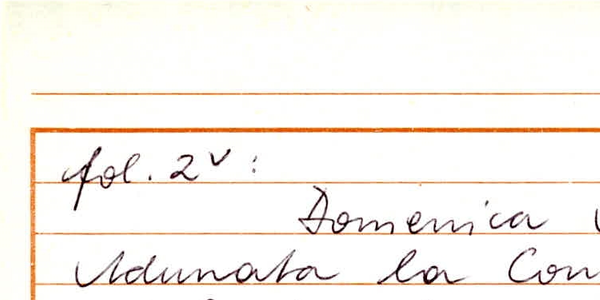 fol. 2v:
Domenica
Adunata la Con